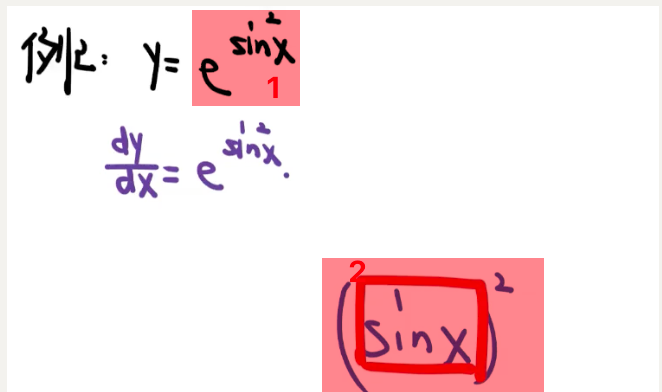 例2: y = e^{sin²x}
1
dy/dx = e^{sin²x} ·
2
(sin x)²